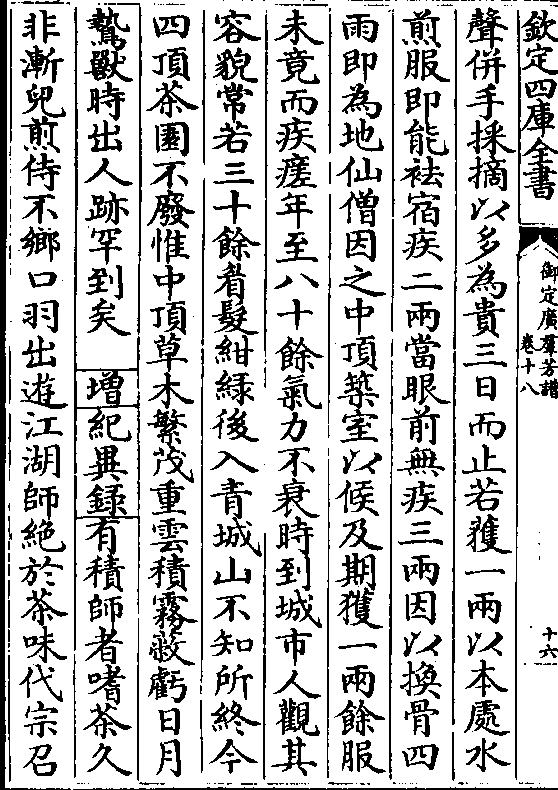 欽定四庫全書
御定廣羣芳譜
卷十八
十六
聲併手採摘以多為貴三日而止若獲一兩以本處水
煎服即能袪宿疾二兩當眼前無疾三兩因以換骨四
兩即為地仙僧因之中頂築室以候及期獲一兩餘服
未竟而疾瘥年至八十餘氣力不衰時到城市人觀其
容貌常若三十餘者髮紺緑後入青城山不知所終今
四頂茶園不廢惟中頂草木繁茂重雲積霧蔽虧日月
鷙獸時出人跡罕到矣 增紀異録有積師者嗜茶久
非漸兒煎侍不鄉口羽出遊江湖師絶於茶味代宗召